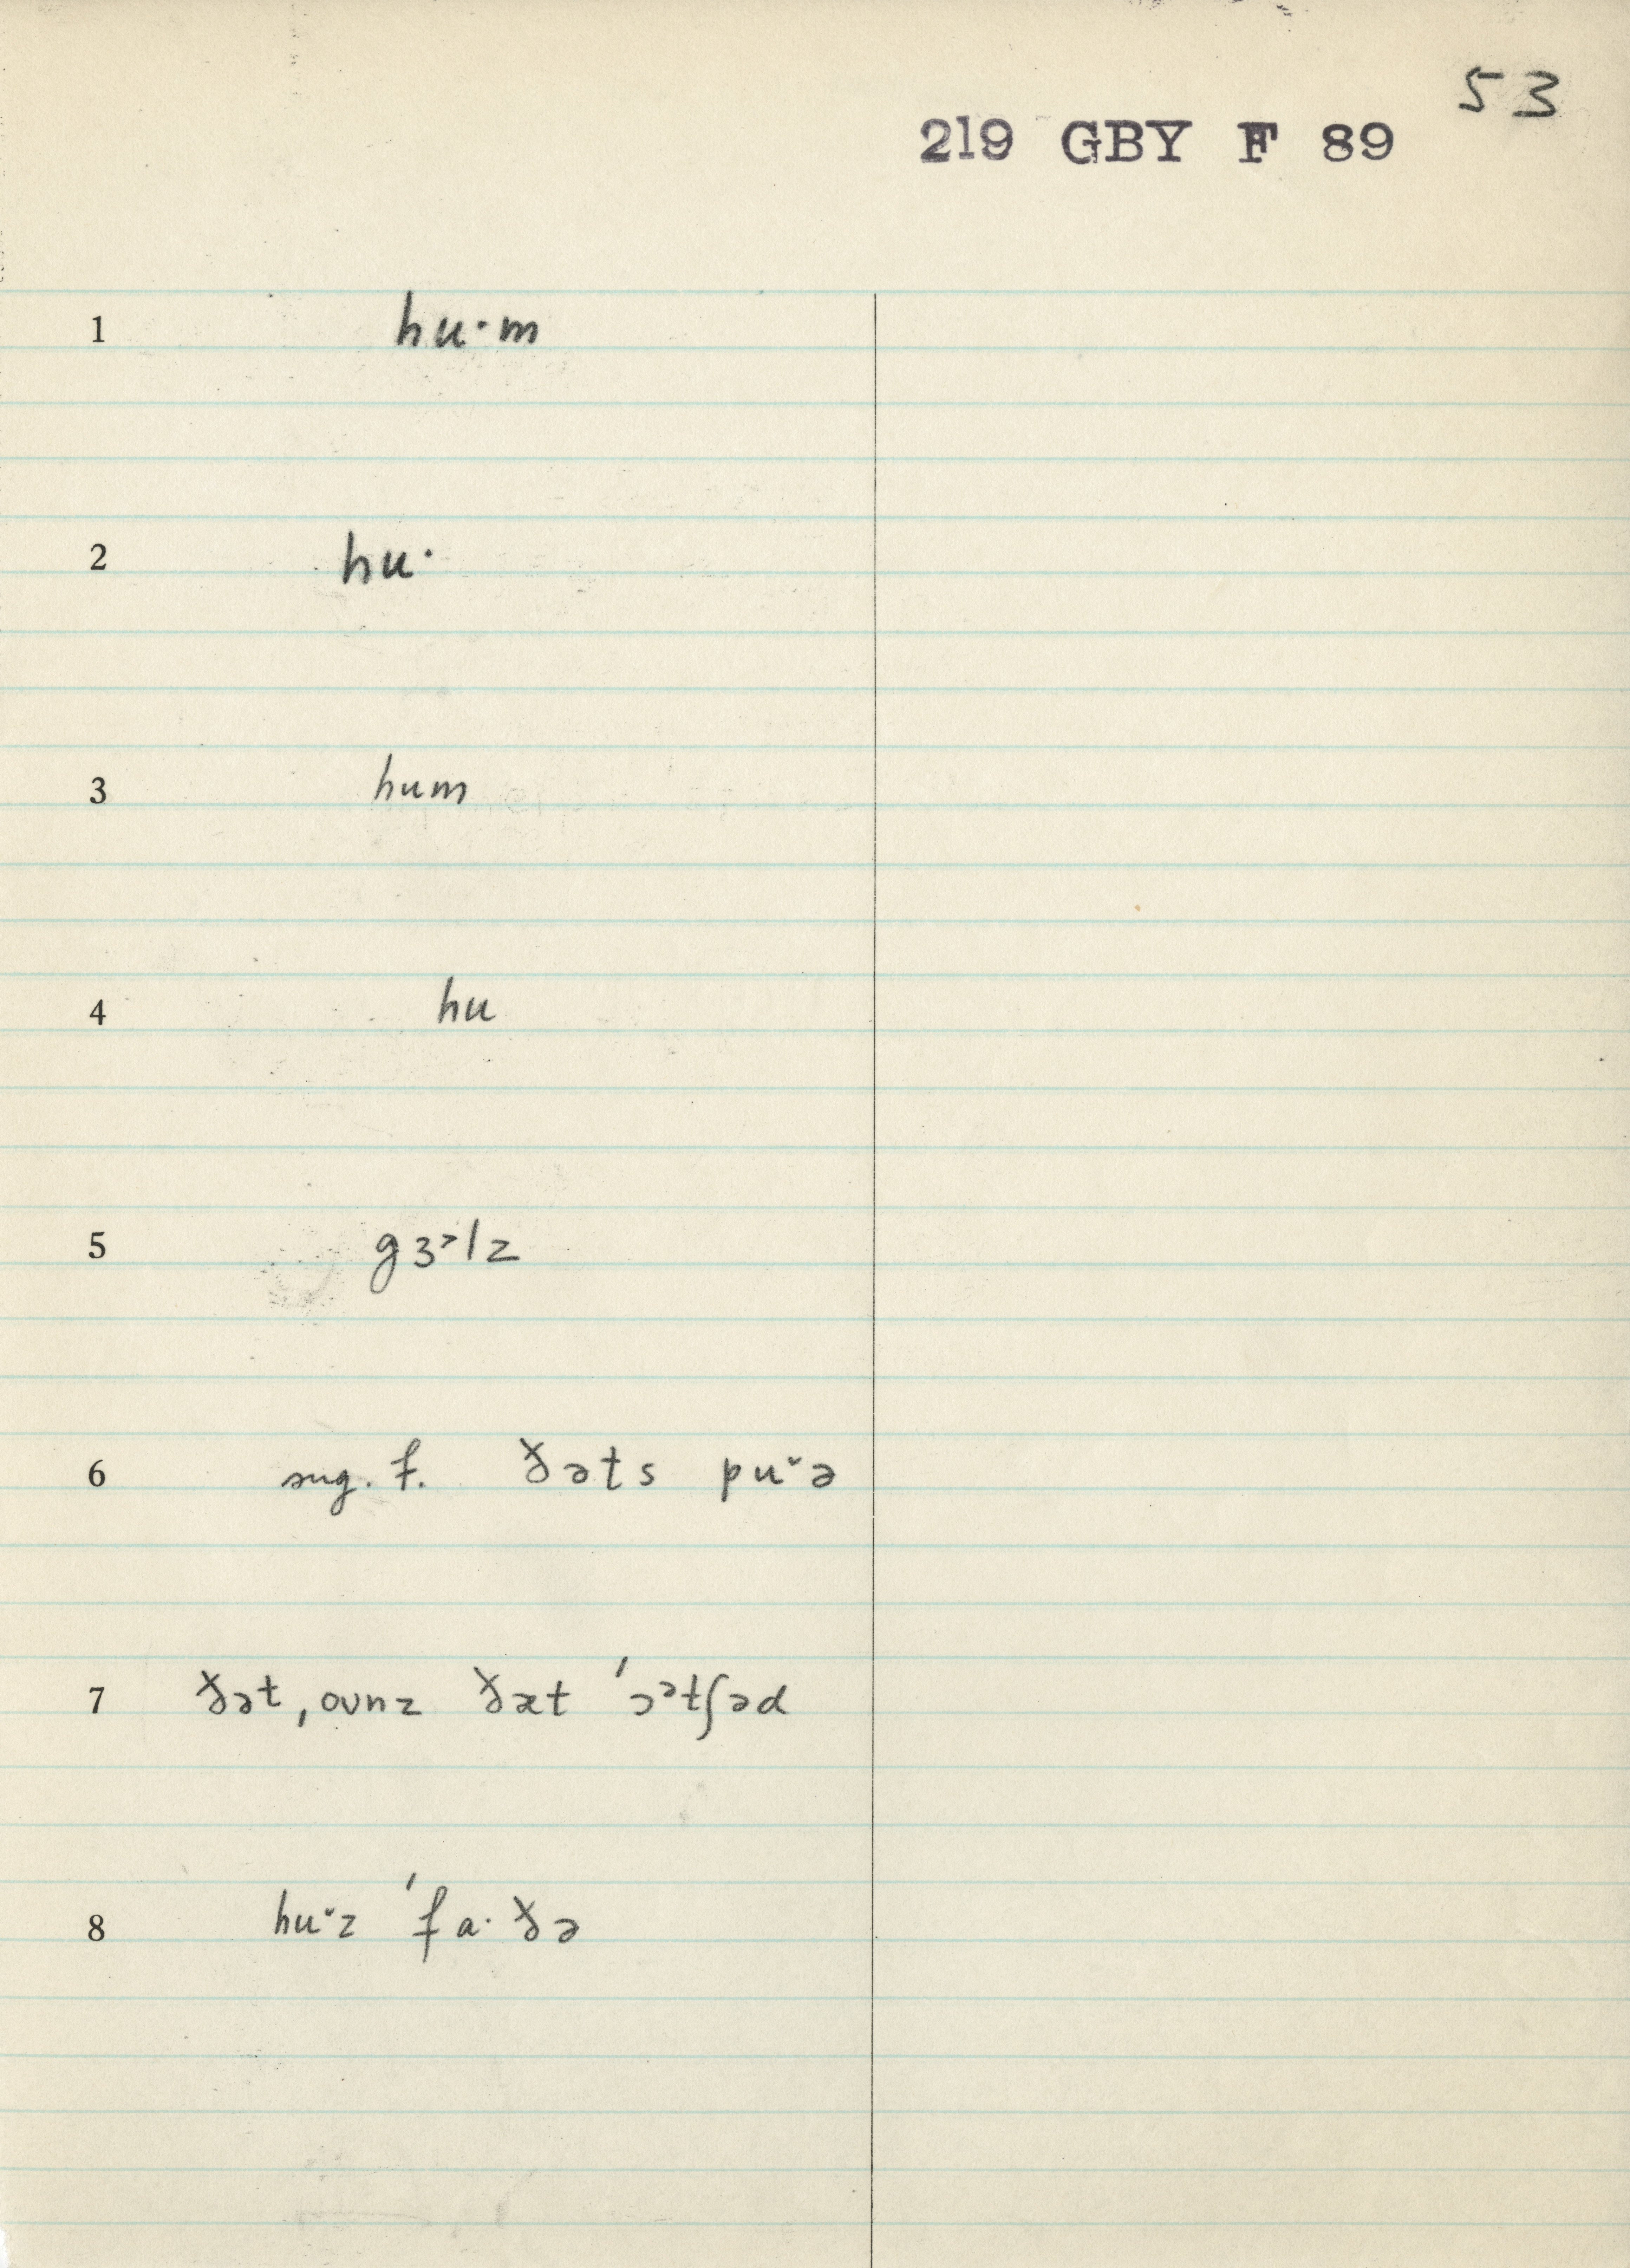 53
219 GBY F 89
1 hu·m
2 hu·
3 hum
4 hu
5 gɜ˃lz
6 sug. f. ðəts puˇə
7 ðət, oʊnz ðæt 'ɔᵊtʃəd
8 huˇz 'fa·ðə